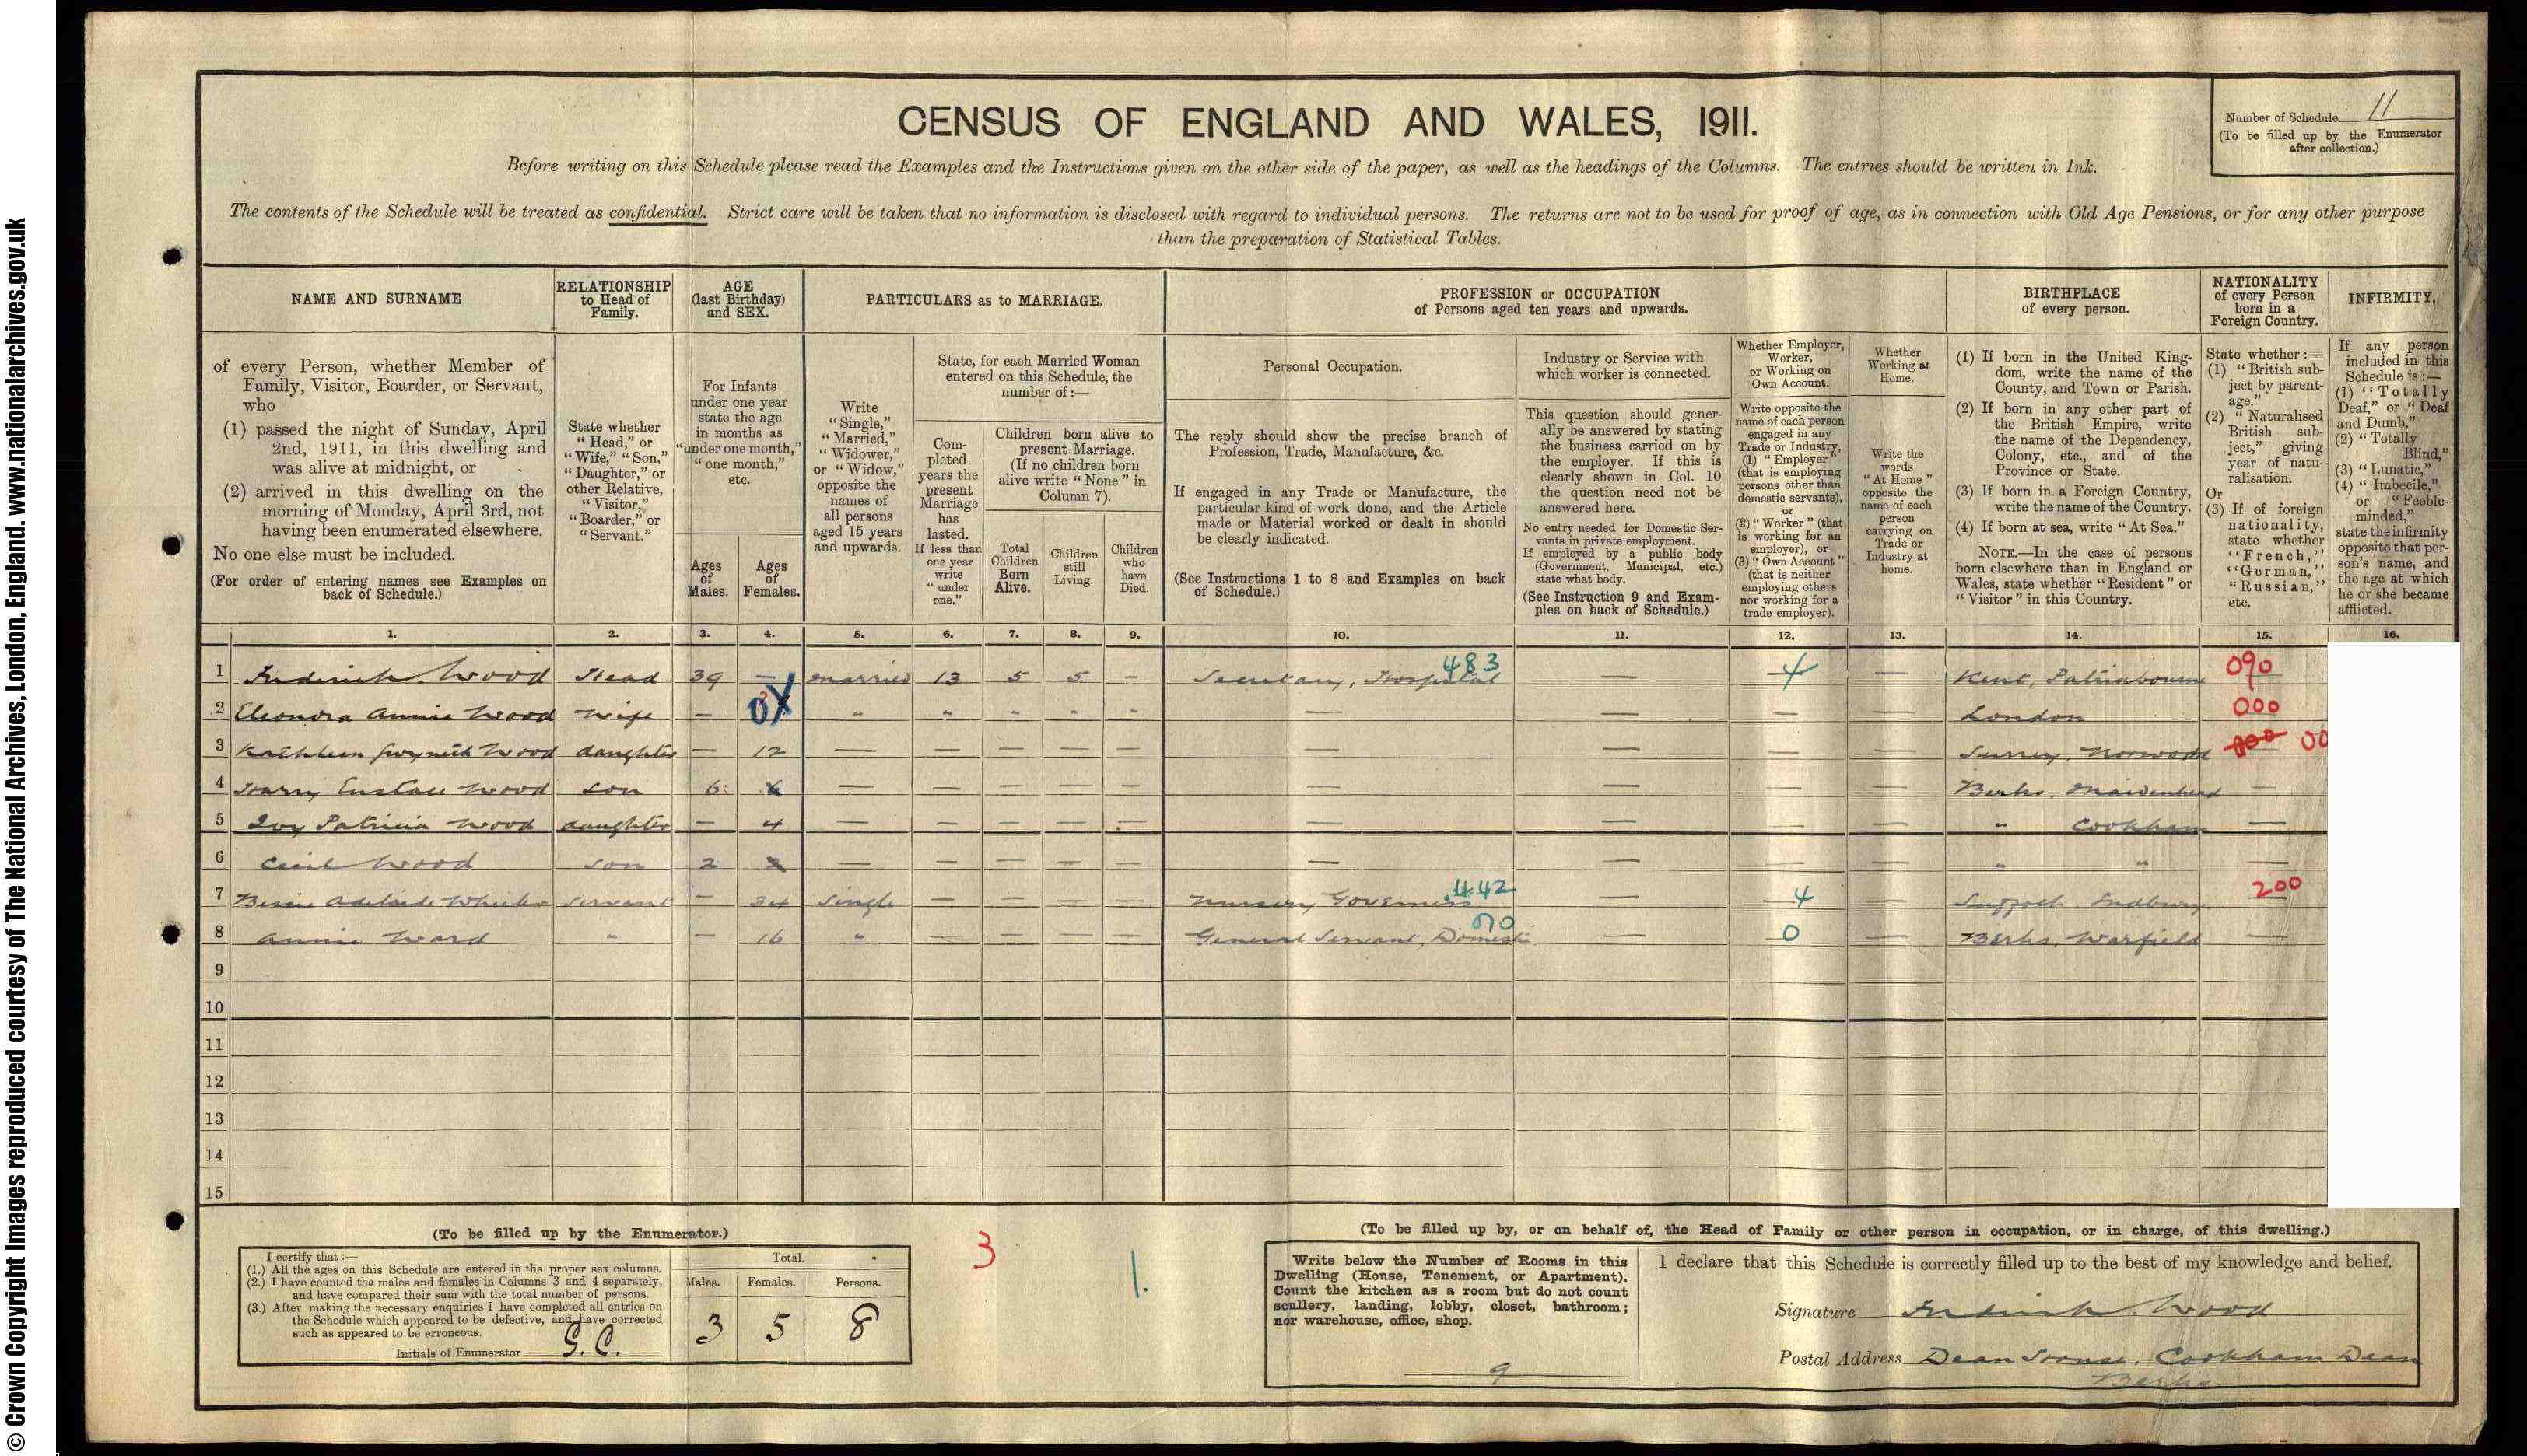 © Crown Copyright Images reproduced courtesy of The National Archives, London, England. www.nationalarchives.gov.uk
CENSUS OF ENGLAND AND WALES, 1911.
Number of Schedule 11
(To be filled up by the Enumerator
after collection.)
Before writing on this Schedule please read the Examples and the Instructions given on the other side of the paper, as well as the headings of the Columns. The entries should be written in Ink.
The contents of the Schedule will be treated as confidential. Strict care will be taken that no information is disclosed with regard to individual persons. The returns are not to be used for proof of age, as in connection with Old Age Pensions, or for any other purpose
than the preparation of Statistical Tables.
NAME AND SURNAME
of every Person, whether Member of
Family, Visitor, Boarder, or Servant,
who
(1) passed the night of Sunday, April
2nd, 1911, in this dwelling and
was alive at midnight, or
(2) arrived in this dwelling on the
morning of Monday, April 3rd, not
having been enumerated elsewhere.
No one else must be included.
(For order of entering names see Examples on
back of Schedule.)
RELATIONSHIP
to Head of
Family.
State whether
"Head," or
"Wife," "Son,"
"Daughter," or
other Relative,
"Visitor,"
"Boarder," or
"Servant."
AGE
(last Birthday)
and SEX.
For Infants
under one year
state the age
in months as
"under one month,"
"one month,"
etc.
Ages
of
Males.
Ages
of
Females.
PARTICULARS as to MARRIAGE.
Write
"Single,"
"Married,"
"Widower,"
or "Widow,"
opposite the
names of
all persons
aged 15 years
and upwards.
State, for each Married Woman
entered on this Schedule, the
number of :—
Com-
pleted
years the
present
Marriage
has
lasted.
If less than
one year
write
"under
one."
Children born alive to
present Marriage.
(If no children born
alive write "None" in
Column 7).
Total
Children
Born
Alive.
Children
still
Living.
Children
who
have
Died.
PROFESSION or OCCUPATION
of Persons aged ten years and upwards.
Personal Occupation.
The reply should show the precise branch of
Profession, Trade, Manufacture, &c.
If engaged in any Trade or Manufacture, the
particular kind of work done, and the Article
made or Material worked or dealt in should
be clearly indicated.
(See Instructions 1 to 8 and Examples on back
of Schedule.)
Industry or Service with
which worker is connected.
This question should gener-
ally be answered by stating
the business carried on by
the employer. If this is
clearly shown in Col. 10
the question need not be
answered here.
No entry needed for Domestic Ser-
vants in private employment.
If employed by a public body
(Government, Municipal, etc.)
state what body.
(See Instruction 9 and Exam-
ples on back of Schedule.)
Whether Employer,
Worker,
or Working on
Own Account.
Write opposite the
name of each person
engaged in any
Trade or Industry,
(1) "Employer"
(that is employing
persons other than
domestic servants),
or
(2) "Worker" (that
is working for an
employer), or
(3) "Own Account"
(that is neither
employing others
nor working for a
trade employer).
Whether
Working at
Home.
Write the
words
"At Home"
opposite the
name of each
person
carrying on
Trade or
Industry at
home.
BIRTHPLACE
of every person.
(1) If born in the United King-
dom, write the name of the
County, and Town or Parish.
(2) If born in any other part of
the British Empire, write
the name of the Dependency,
Colony, etc., and of the
Province or State.
(3) If born in a Foreign Country,
write the name of the Country.
(4) If born at sea, write "At Sea."
NOTE.—In the case of persons
born elsewhere than in England or
Wales, state whether "Resident" or
"Visitor" in this Country.
NATIONALITY
of every Person
born in a
Foreign Country.
State whether :—
(1) "British sub-
ject by parent-
age."
(2) "Naturalised
British sub-
ject," giving
year of natu-
ralisation.
Or
(3) If of foreign
nationality,
state whether
"French,"
"German,"
"Russian,"
etc.
INFIRMITY.
If any person
included in this
Schedule is :—
(1) "Totally
Deaf," or "Deaf
and Dumb,"
(2) "Totally
Blind,"
(3) "Lunatic,"
(4) "Imbecile,"
or "Feeble-
minded,"
state the infirmity
opposite that per-
son's name, and
the age at which
he or she became
afflicted.
1. 2. 3. 4. 5. 6. 7. 8. 9. 10. 11. 12. 13. 14. 15. 16.
1 Frederick Wood Head 39 — married 13 5 5 - Secretary, Hospital 483 — 4 — Kent, Patrixbourne 090
2 Eleonora Annie Wood Wife — " " " " " — — — — London 000
3 Kathleen Gwyneth Wood daughter — 12 — — — — — — — — — Surrey, Norwood
4 Harry Eustace Wood son 6 — — — — — — — — — Berks, Maidenhead —
5 Ivy Patricia Wood daughter — 4 — — — — — — — — — " Cookham —
6 Cecil Wood son 2 — — — — — — — — — " " —
7 Bessie Adelaide Wheeler Servant — 34 Single — — — — Nursery Governess 442 — 4 — Suffolk Sudbury 200
8 Annie Ward " — 16 " — — — — General Servant, Domestic — 0 — Berks, Warfield —
9
10
11
12
13
14
15
(To be filled up by the Enumerator.)
I certify that :—
(1.) All the ages on this Schedule are entered in the proper sex columns.
(2.) I have counted the males and females in Columns 3 and 4 separately,
and have compared their sum with the total number of persons.
(3.) After making the necessary enquiries I have completed all entries on
the Schedule which appeared to be defective, and have corrected
such as appeared to be erroneous.
Initials of Enumerator G.C.
Total.
Males. Females. Persons.
3 5 8
3
1.
(To be filled up by, or on behalf of, the Head of Family or other person in occupation, or in charge, of this dwelling.)
Write below the Number of Rooms in this
Dwelling (House, Tenement, or Apartment).
Count the kitchen as a room but do not count
scullery, landing, lobby, closet, bathroom;
nor warehouse, office, shop.
9
I declare that this Schedule is correctly filled up to the best of my knowledge and belief.
Signature Frederick Wood
Postal Address Dean House, Cookham Dean
Berks